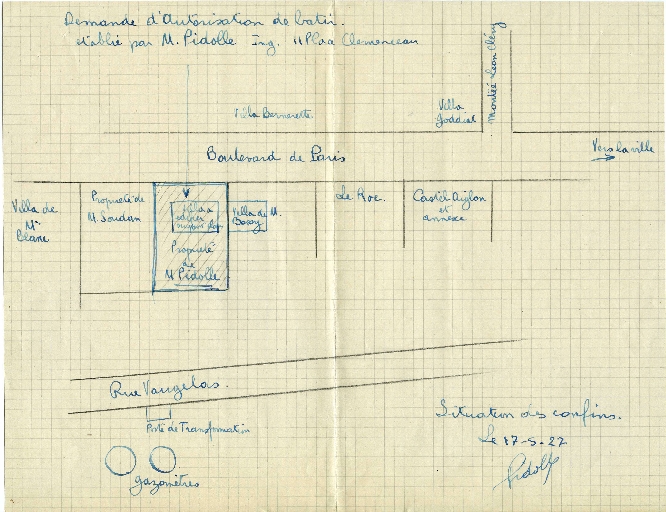 Demande d'Autorisation de batir.
établie par M. Pidolle Ing. 11 Place Clemenceau
Montée Léon Cléry
Villa Bernerette
Villa
Goddial
Boulevard de Paris
Vers la ville
Villa de
Mr
Blanc
Propriété de
M. Soudan
Villa à
Villa de M.
Le Roc.
Castel Aiglon
et
annexe
Propriété
de
M Pidolle
Rue Vaugelas.
Poste de Transformation
gazomètres
Situation des confins.
Le 17-5-22
Pidolle